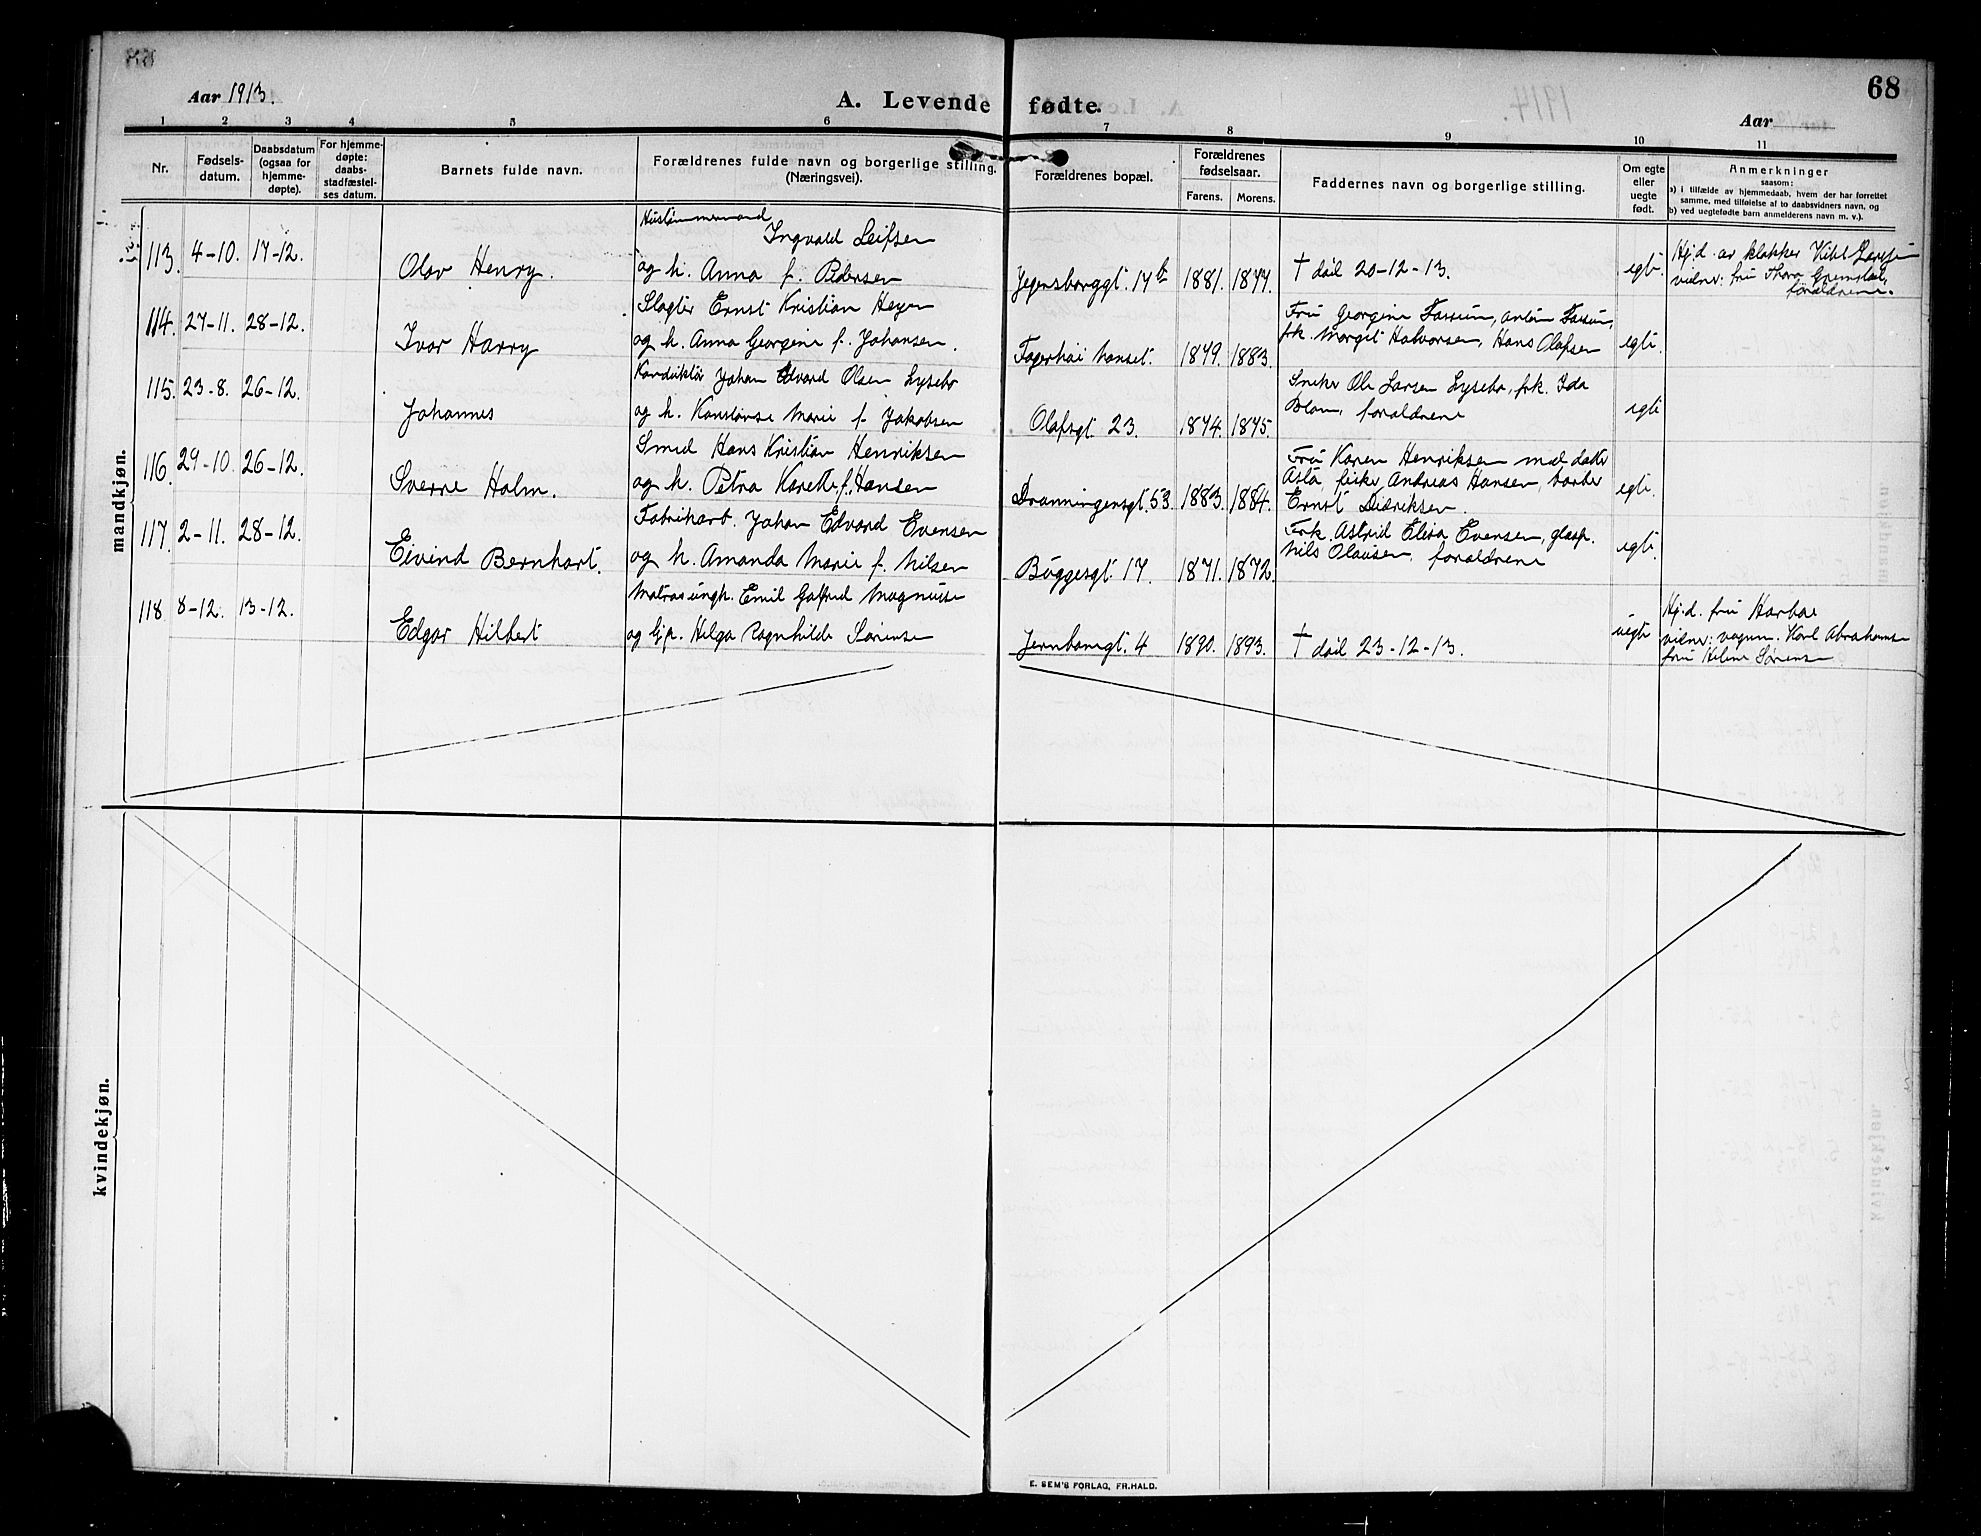 68
Aar 1913.
A. Levende fødte.
Aar
1 2 3 4 5 6 7 8 9 10 11
Nr.
Fødsels-
datum.
Daabsdatum
(ogsaa for
hjemme-
døpte).
For hjemme-
døpte:
daabs-
stadfæstel-
ses datum.
Barnets fulde navn.
Forældrenes fulde navn og borgerlige stilling.
(Næringsvei).
Forældrenes bopæl.
Forældrenes
fødselsaar.
Farens. Morens.
Faddernes navn og borgerlige stilling.
Om egte
eller
uegte
født.
Anmerkninger
saasom:
a) i tilfælde av hjemmedaab, hvem der har forrettet
samme, med tilføielse af to daabsvidners navn, og
b) ved uegtefødte barn anmelderens navn m. v.).
mandkjøn.
113. 4-10. 17-12.
Olav Henry.
Ingvald Leifsen
og h. Anna f. Pedersen
Jegersborggt. 17b 1881. 1877.
† døil 20-12-13.
egte.
Hj.d. av klokker Larsen
vidner: fru Thora
forældrene.
114. 27-11. 28-12.
Ivar Harry
Slagter Ernst Kristian Heyen
og h. Anna Georgine f. Johansen.
1879. 1883.
Fru Georgine Fassum, Anton Fassum,
frk. Margit Halvorsen, Hans Olafsen
egte.
115. 23-8. 26-12.
Johannes
Konduktør Johan Edvard Olsen Lysebo
og h. Konstanse Marie f. Jakobsen
Olafsgt. 23. 1874. 1875.
Ole Larsen Lysebo, frk. Ida
forældrene
egte
116. 29-10. 26-12.
Sverre Holm.
Smed Hans Kristian Henriksen
og h. Petra Karette f. Hansen
Dronningensgt. 53. 1883. 1884.
Fru Karen Henriksen med datter
Asta, Andreas Hansen,
Ernst Didriksen.
egte.
117. 2-11. 28-12.
Eivind Bernhart.
Fabrikarb. Johan Edvard Evensen
og h. Amanda Marie f. Nilsen
Buggesgt. 17. 1871. 1872.
Frk. Astrid Elisa Evensen,
Nils Olausen, forældrene
egte.
118. 8-12. 13-12.
Edgar Hilbert
Matros ungk. Emil Magnusse
og Helga Ragnhilde Sørense
Jernbanegt. 4 1890. 1893.
† døil 23-12-13.
uegte
Hj.d. fru Harboe
vidner: Karl Abrahamse
fru Helene Sørense
kvindekjøn.
E. SEM'S FORLAG, FR.HALD.